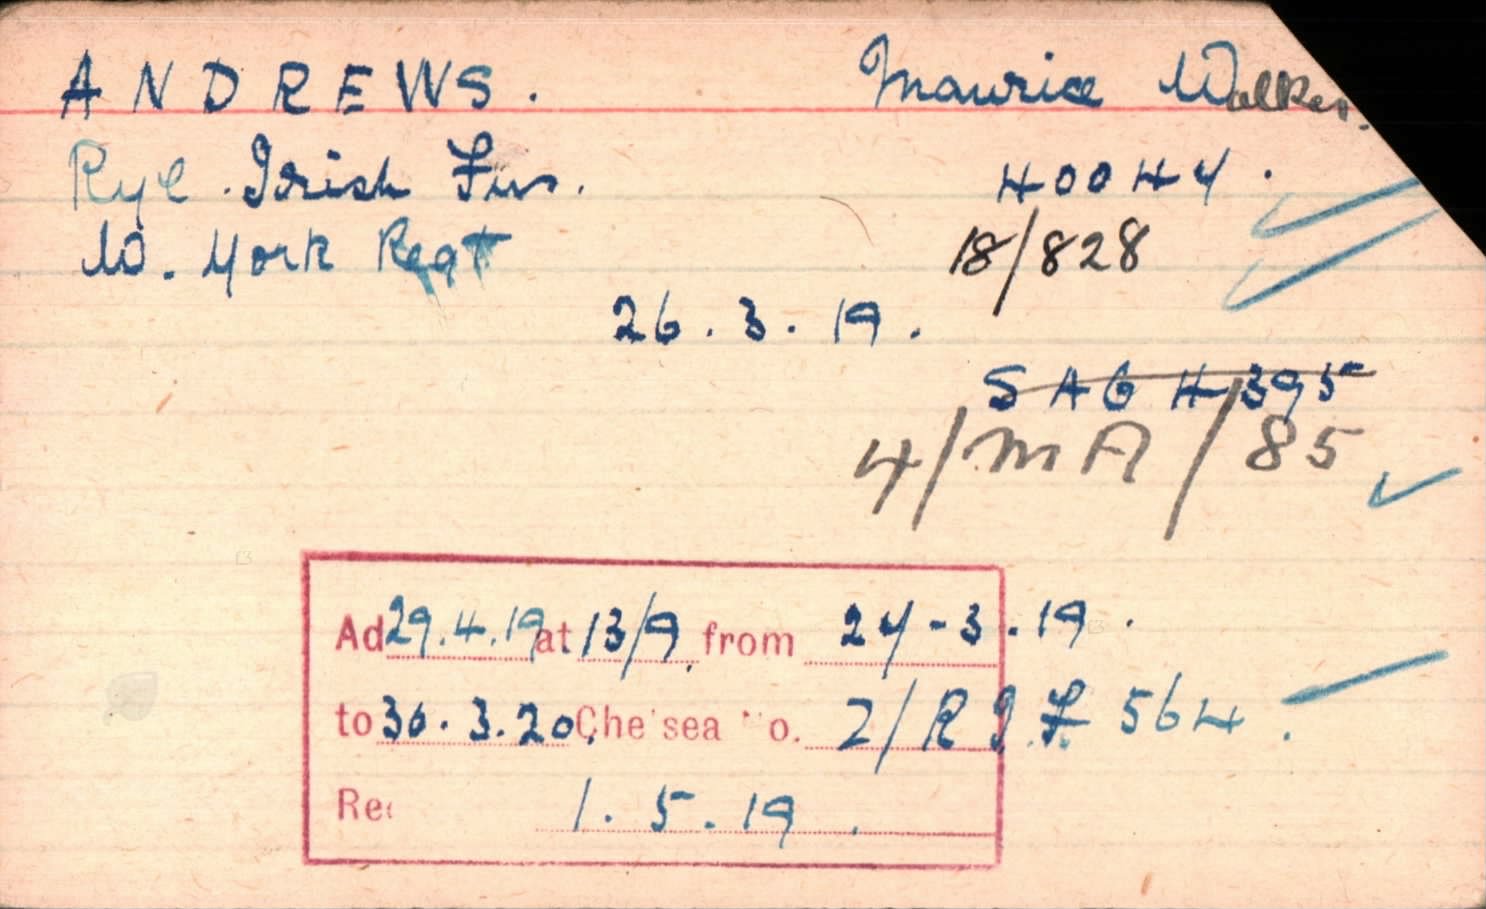 ANDREWS. Maurice Walker.
Ryl. Irish Fus. 40044.
W. York Regt 18/828
26.3.19.
SAG 4395
4/MA/85
Ad 29.4.19 at 13/9 from 24-3.19.
to 30.3.20. Che sea No. 2/RIF 564.
Rec 1.5.19.